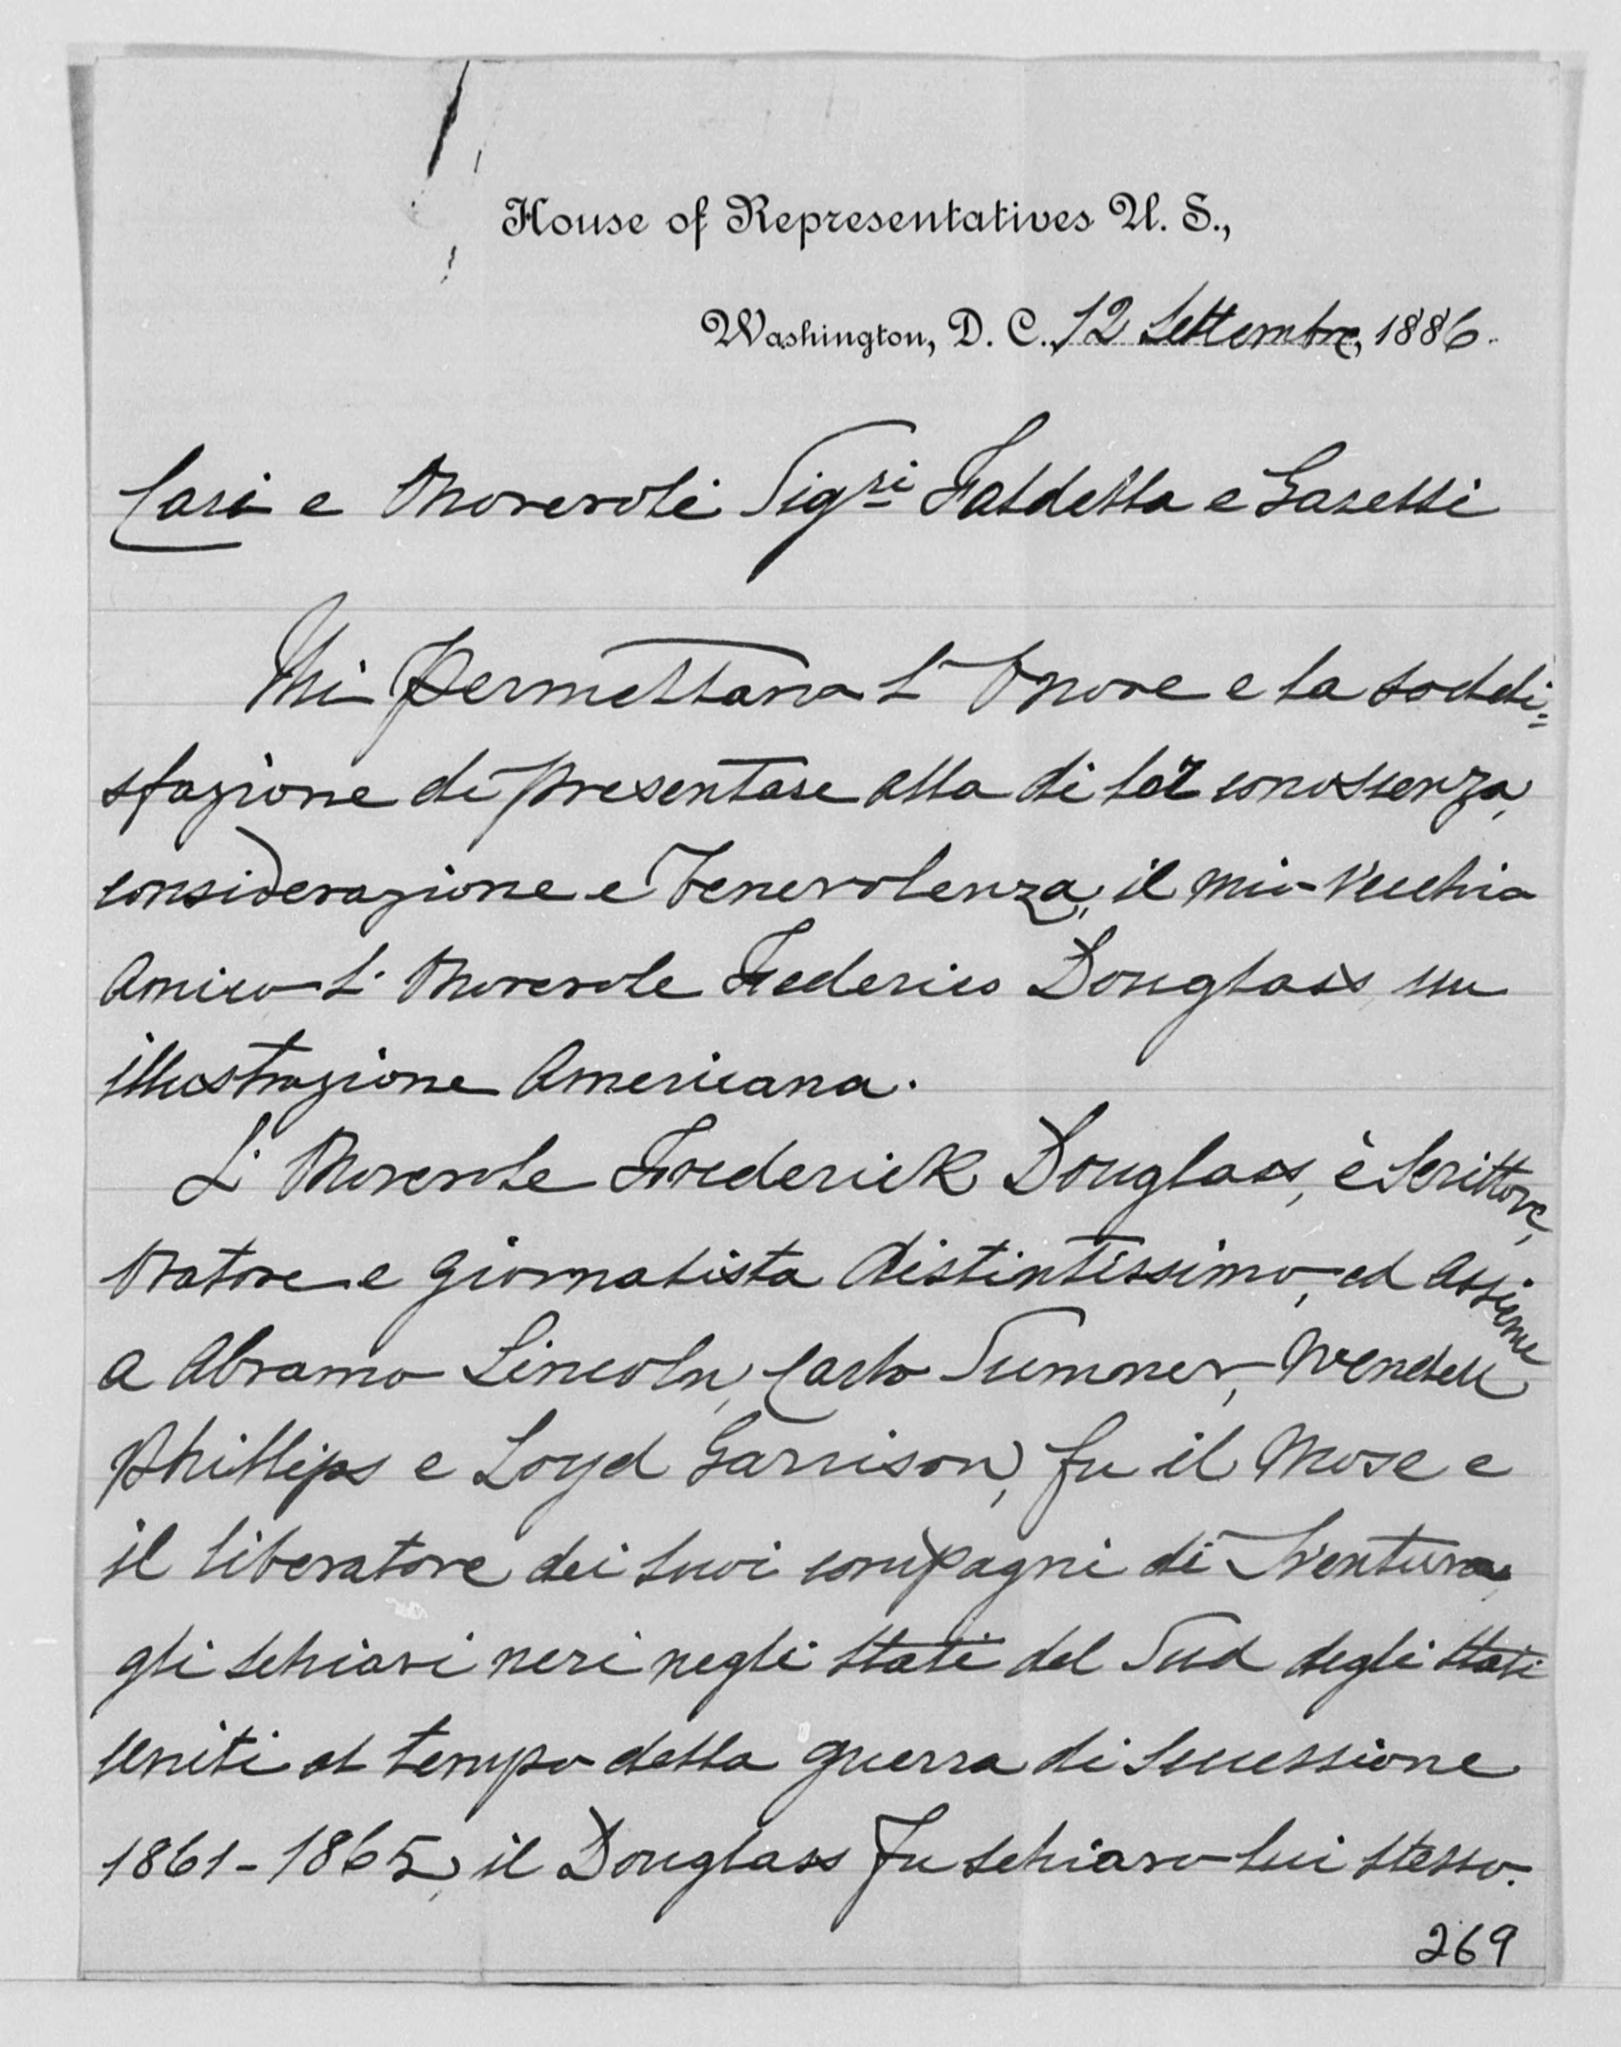 House of Representatives U. S.,
Washington, D. C., 12 Settembre, 1886.
Cari e Onorevoli Sigri Faldella e
Mi permettano l'Onore e la soddi=
sfazione di presentare alla di lor conoscenza,
considerazione e benevolenza, il mio vecchio
Amico l'Onorevole Federico Douglass un
illustrazione Americana.
L'Onorevole Frederick Douglass, è Scrittore,
Oratore e giornalista distintissimo, ed assieme
a Abramo Lincoln, Carlo Sumner, Wendell
Phillips e Loyd Garrison, fu il Mose e
il liberatore dei suoi compagni di Sventura,
gli schiavi neri negli Stati del Sud degli Stati
Uniti al tempo della guerra di Secessione
1861-1865, il Douglass fu schiavo lui stesso.
269